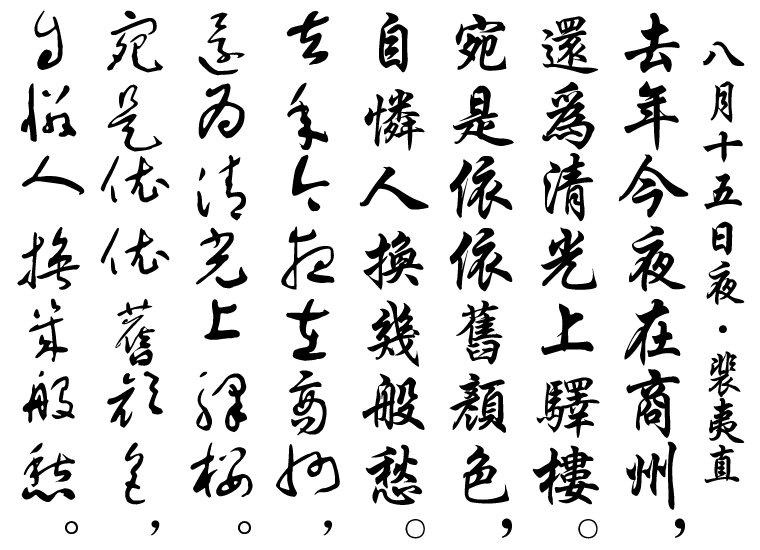 八月十五日夜·裴夷直
去年今夜在商州，
還爲清光上驛樓。
宛是依依舊顏色，
自憐人換幾般愁。
去年今夜在商州，
還為清光上驛樓。
宛是依依舊顏色，
自憐人換幾般愁。